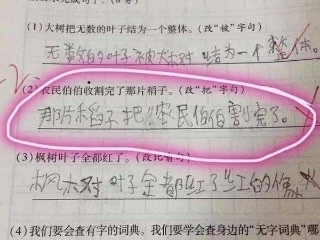 (1)大树把无数的叶子结为一个整体。(改"被"字句)
无数的叶子被大树结为一个整体。
-2
(2)农民伯伯收割完了那片稻子。(改"把"字句)
那片稻子把农民伯伯割完了。
(3)枫树叶子全都红了。(改比喻句)
枫树叶子全都红了红的像
(4)我们要会查有字的词典。我们要学会查身边的"无字词典"哪